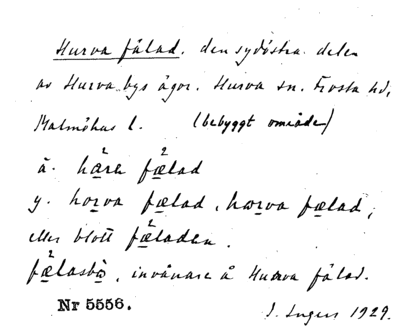 Hurva fälad. den sydöstra delen
av Hurva bys ägor. Hurva sn. Frosta hd,
Malmöhus l. (bebyggt område)
ä. håra fælad
y. horva fælad, hærva fælad,
eller blott fæladen.
fælasbo, invånare å Hurva fälad.
Nr 5556. J. Ingers 1929.